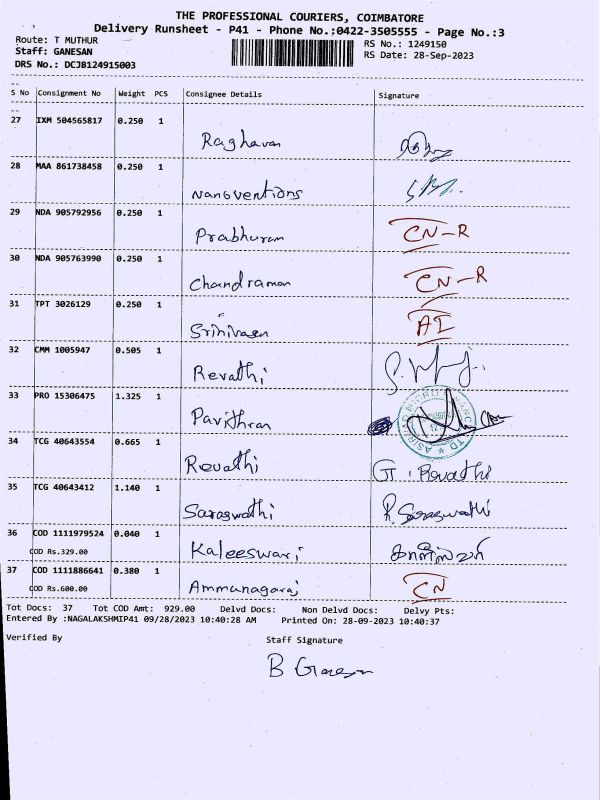 THE PROFESSIONAL COURIERS, COIMBATORE
Delivery Runsheet - P41 - Phone No.:0422-3505555 - Page No.:3
Route: T MUTHUR RS No.: 1249150
Staff: GANESAN RS Date: 28-Sep-2023
DRS No.: DCJB124915003
S No Consignment No Weight PCS Consignee Details Signature
27 IXM 504565817 0.250 1 Raghavan
28 MAA 861738458 0.250 1 Nanoventions
29 NDA 905792956 0.250 1 Prabhuram CN-R
30 NDA 905763990 0.250 1 Chandraman CN-R
31 TPT 3026129 0.250 1 Srinivasan AI
32 CMM 1005947 0.505 1 Revathi
33 PRO 15306475 1.325 1 Pavithran
34 TCG 40643554 0.665 1 Revathi G. Revathi
35 TCG 40643412 1.140 1 Saraswathi R. Saraswathi
36 COD 1111979524 0.040 1 Kaleeswari காளீஸ்வரி
COD Rs.329.00
37 COD 1111886641 0.380 1 Ammanagaraj CN
COD Rs.600.00
Tot Docs: 37 Tot COD Amt: 929.00 Delvd Docs: Non Delvd Docs: Delvy Pts:
Entered By :NAGALAKSHMIP41 09/28/2023 10:40:28 AM Printed On: 28-09-2023 10:40:37
Verified By Staff Signature
B Ganesan